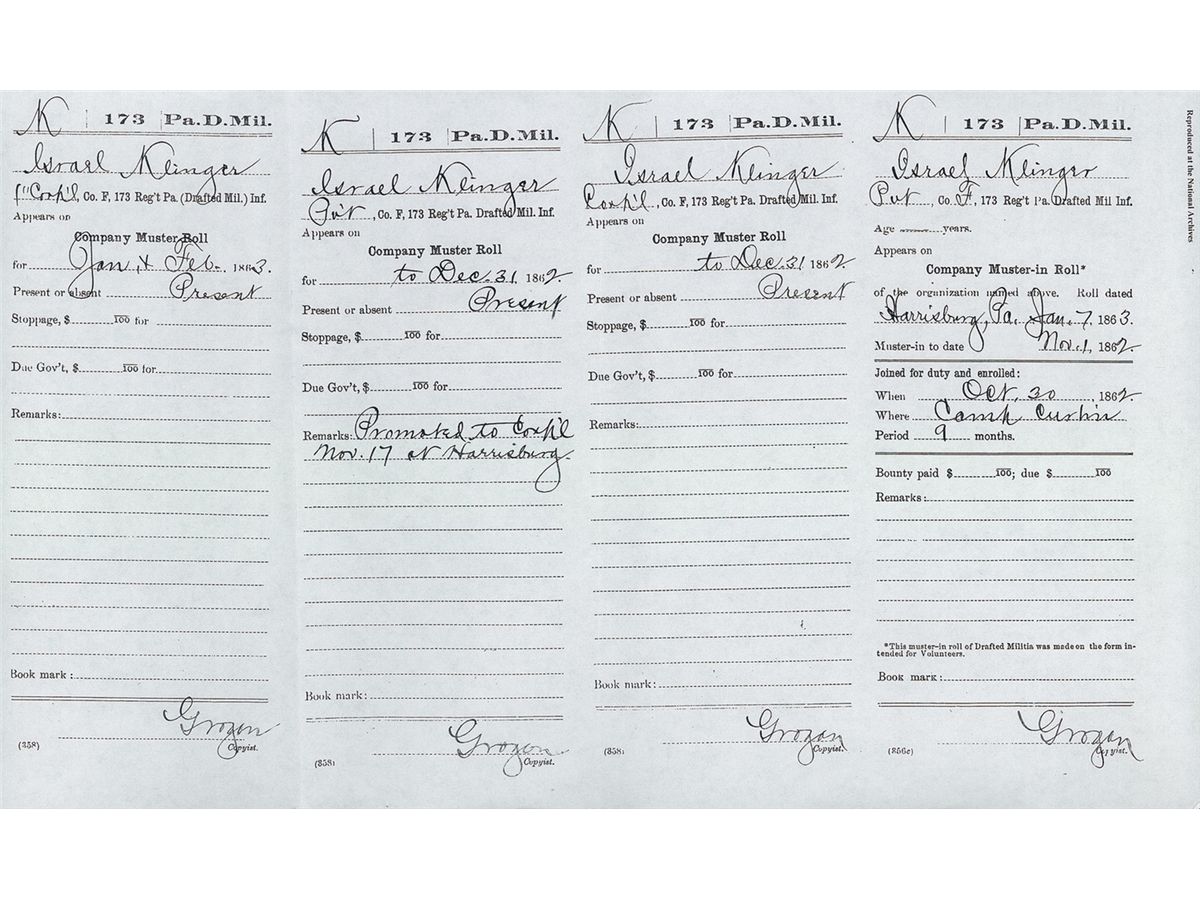 K | 173 | Pa.D.Mil.
Israel Klinger
1" Corp'l, Co. F, 173 Reg't Pa. (Drafted Mil.) Inf.
Appears on
Company Muster Roll
for Jan, & Feb., 1863.
Present or absent Present
Stoppage, $ 100 for
Due Gov't, $ 100 for
Remarks:
Book mark:
Grogan
(358) Copyist.
K | 173 | Pa.D.Mil.
Israel Klinger
Pv't, Co. F, 173 Reg't Pa. Drafted Mil. Inf.
Appears on
Company Muster Roll
for to Dec. 31 1862.
Present or absent Present
Stoppage, $ 100 for
Due Gov't, $ 100 for
Remarks: Promoted to Corp'l
Nov. 17 at Harrisburg.
Book mark:
Grogan
(358) Copyist.
K | 173 | Pa.D.Mil.
Israel Klinger
Corp'l, Co. F, 173 Reg't Pa. Drafted Mil. Inf.
Appears on
Company Muster Roll
for to Dec. 31 1862.
Present or absent Present
Stoppage, $ 100 for
Due Gov't, $ 100 for
Remarks:
Book mark:
Grogan
(358) Copyist.
K | 173 | Pa.D.Mil.
Israel Klinger
Pvt, Co. F, 173 Reg't Pa. Drafted Mil Inf.
Age years.
Appears on
Company Muster-in Roll*
of the organization named above. Roll dated
Harrisburg, Pa. Jan. 7, 1863.
Muster-in to date Nov. 1, 1862.
Joined for duty and enrolled:
When Oct. 30, 1862.
Where Camp Curtin
Period 9 months.
Bounty paid $ 100; due $ 100
Remarks:
*This muster-in roll of Drafted Militia was made on the form in-
tended for Volunteers.
Book mark:
Grogan
(356c) Copyist.
Reproduced at the National Archives